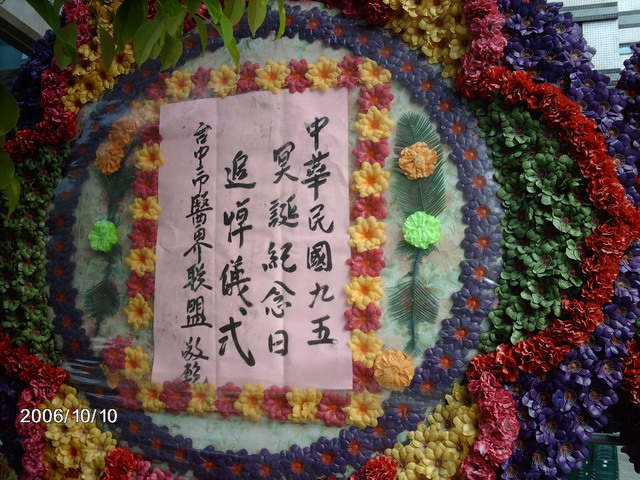 中華民國九五
冥誕紀念日
追悼儀式
台中市醫界聯盟 敬輓
2006/10/10